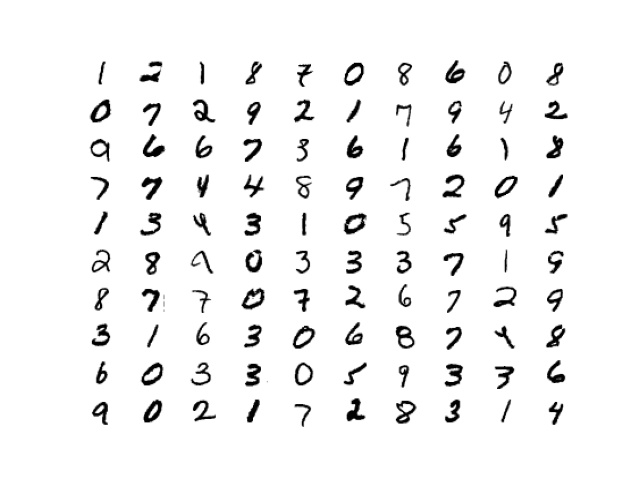 1 2 1 8 7 0 8 6 0 8
0 7 2 9 2 1 7 9 4 2
9 6 6 7 3 6 1 6 1 8
7 7 4 4 8 9 7 2 0 1
1 3 4 3 1 0 5 5 9 5
2 8 9 0 3 3 3 7 1 9
8 7 7 0 7 2 6 7 2 9
3 1 6 3 0 6 8 7 4 8
6 0 3 3 0 5 9 3 3 6
9 0 2 1 7 2 8 3 1 4